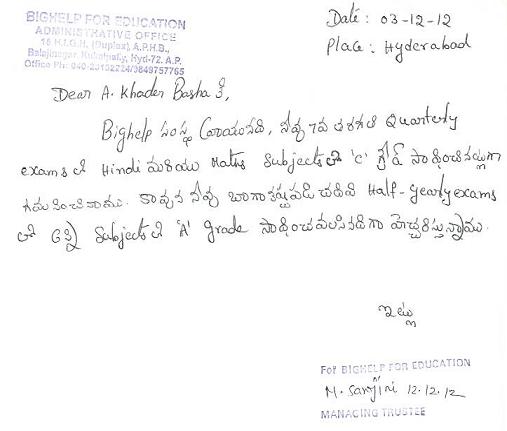 BIGHELP FOR EDUCATION
ADMINISTRATIVE OFFICE
16 H.I.G.H. (Duplex), A.P.H.B.,
Balajinagar, Kukatpally, Hyd-72. A.P.
Office Ph: 040-23152224/9849757765
Date: 03-12-12
Place: Hyderabad
Dear A. Khader Basha కి,
Bighelp సంస్థ వ్రాయునది, నీవు 7వ తరగతి Quarterly
exams లో Hindi మరియు Maths Subjects లో 'C' గ్రేడ్ సాధించినట్లుగా
గమనించినాము. కావున నీవు బాగా కష్టపడి చదివి Half-yearly exams
లో అన్ని Subjects లో 'A' grade సాధించవలసినదిగా హెచ్చరిస్తున్నాము.
ఇట్లు
For BIGHELP FOR EDUCATION
M. Sarojini 12.12.12
MANAGING TRUSTEE